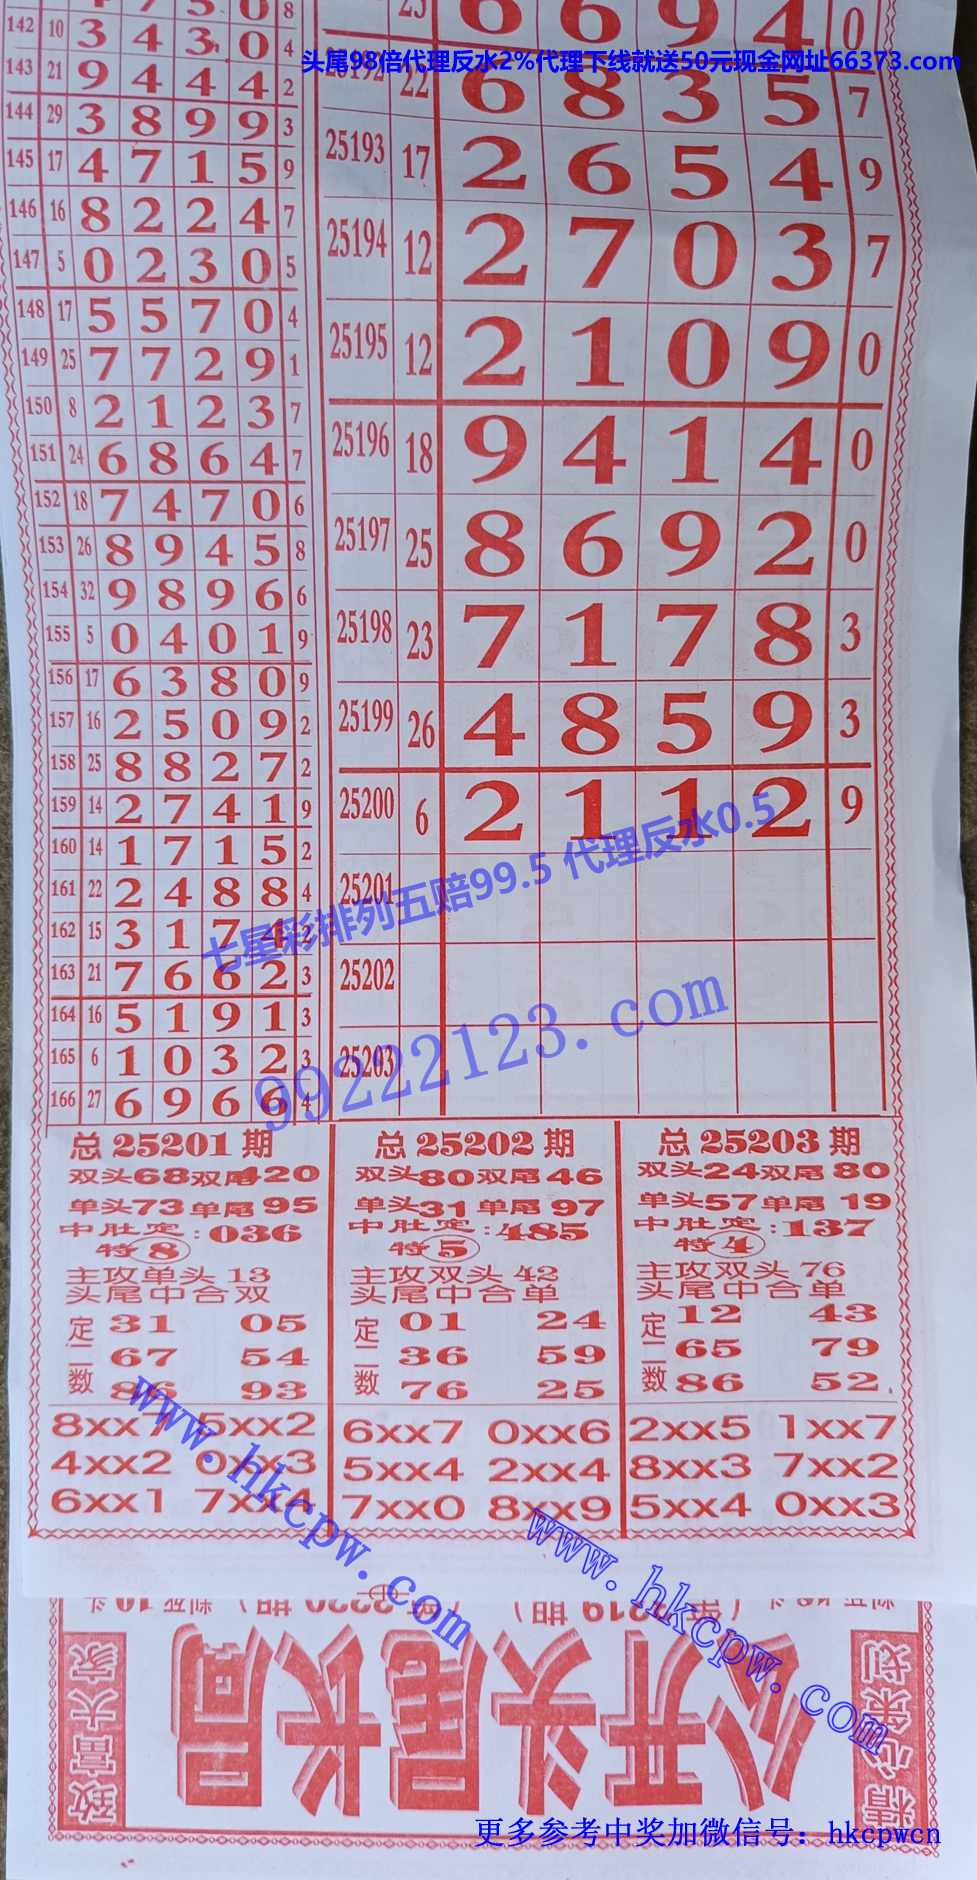 头尾98倍代理反水2%代理下线就送50元现金网址66373.com
142 10 3 4 3 0 4
143 21 9 4 4 4 2
144 29 3 8 9 9 3
145 17 4 7 1 5 9
146 16 8 2 2 4 7
147 5 0 2 3 0 5
148 17 5 5 7 0 4
149 25 7 7 2 9 1
150 8 2 1 2 3 7
151 24 6 8 6 4 7
152 18 7 4 7 0 6
153 26 8 9 4 5 8
154 32 9 8 9 6 6
155 5 0 4 0 1 9
156 17 6 3 8 0 9
157 16 2 5 0 9 2
158 25 8 8 2 7 2
159 14 2 7 4 1 9
160 14 1 7 1 5 2
161 22 2 4 8 8 4
162 15 3 1 7 4 2
163 21 7 6 6 2 3
164 16 5 1 9 1 3
165 6 1 0 3 2 3
166 27 6 9 6 6 4
6 6 9 4 0
25192 22 6 8 3 5 7
25193 17 2 6 5 4 9
25194 12 2 7 0 3 7
25195 12 2 1 0 9 0
25196 18 9 4 1 4 0
25197 25 8 6 9 2 0
25198 23 7 1 7 8 3
25199 26 4 8 5 9 3
25200 6 2 1 1 2 9
25201
25202
25203
七星彩排列五赔99.5 代理反水0.5
99222123.com
总25201期
双头68双尾420
单头73单尾95
中肚定:036
特8
主攻单头13
头尾中合双
定二数
31 05
67 54
86 93
8xx7 5xx2
4xx2 0xx3
6xx1 7xx4
总25202期
双头80双尾46
单头31单尾97
中肚定:485
特5
主攻双头42
头尾中合单
定二数
01 24
36 59
76 25
6xx7 0xx6
5xx4 2xx4
7xx0 8xx9
总25203期
双头24双尾80
单头57单尾19
中肚定:137
特4
主攻双头76
头尾中合单
定二数
12 43
65 79
86 52
2xx5 1xx7
8xx3 7xx2
5xx4 0xx3
www.hkcpw.com
www.hkcpw.com
致富大家
精心策划
公开头尾长局
更多参考中奖加微信号：hkcpwcn